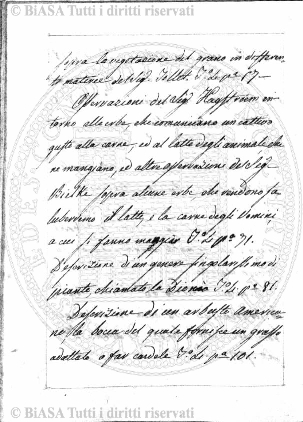 © BiASA Tutti i diritti riservati
Sopra la vegetazione del grano in differen
ti materie del Sig. Tillet. T.º p.ª 17.
Osservazioni del Sig. Hagstroem in
torno alle erbe, che comunicano un cattivo
gusto alla carne, ed al latte degli animali che
ne mangiano, ed altre osservazioni del Sig.
Bielke sopra alcune erbe che rendono sa
lubre il latte, e la carne degli
a cui si fanno mangiar T.º p.ª 71.
Descrizione di un genere singolarissimo di
piante chiamato la Dionea T.º p.ª 81.
Descrizione di un arbusto America
no, la bocca del quale fornisce un grasso
adottato a far candele T.º p.ª 101.
© BiASA Tutti i diritti riservati